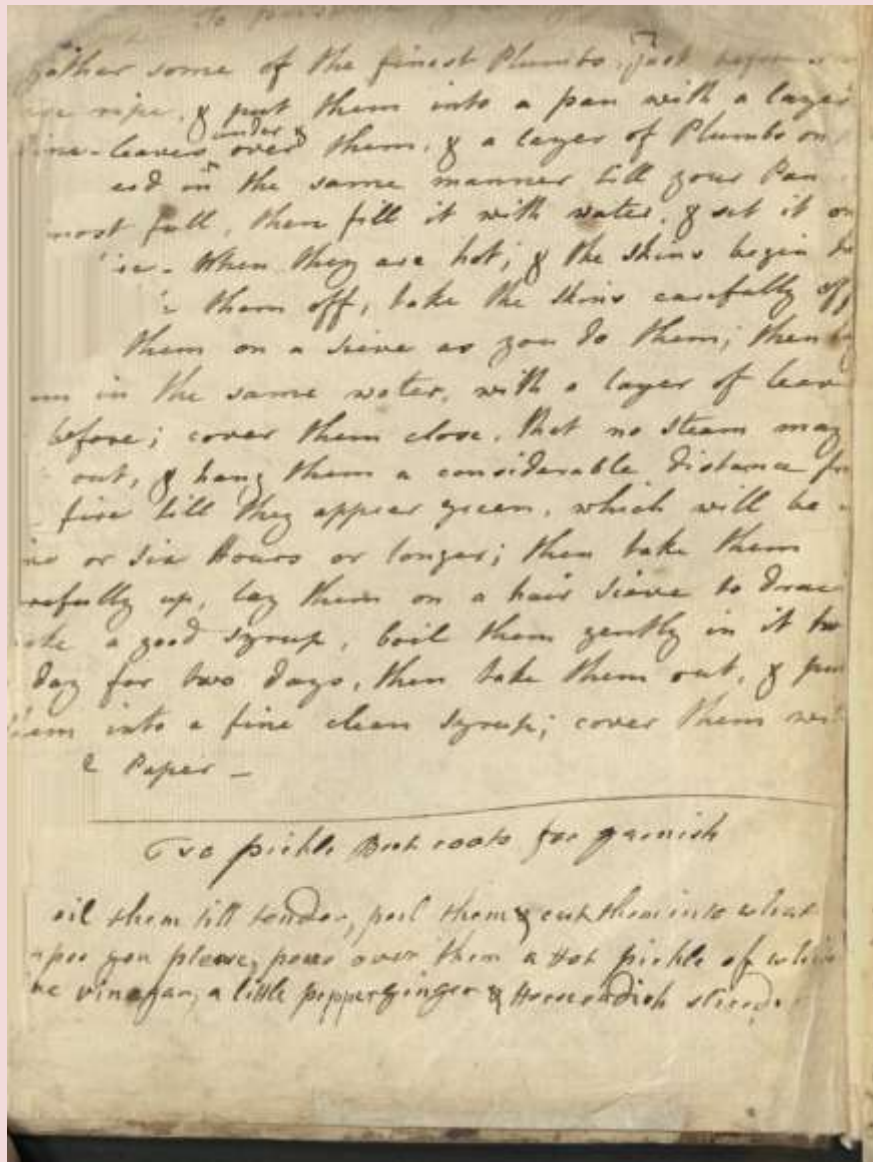 To
gather some of the finest Plumbs, just before
are ripe, & put them into a pan with a layer
vine-leaves under & over them, & a layer of Plumbs on
and in the same manner till your Pan
most full, then fill it with water, & set it on
When they are hot, & the skins begin to
them off, take the skins carefully off
them on a sieve as you do them; then
in the same water, with a layer of leav
before; cover them close, that no steam may
out, & hang them a considerable distance fro
fire till they appear green, which will be
or six Hours or longer; then take them
refully up, lay them on a hair sieve to drai
ake a good syrup, boil them gently in it tw
day for two days, then take them out, & put
them into a fine clean syrup; cover them wi
Paper —
To pickle Beet roots for garnish
oil them till tender, peel them & cut them into what
apes you please, pour over them a Hot pickle of white
ine vinegar, a little pepper ginger & Horseradish sliced